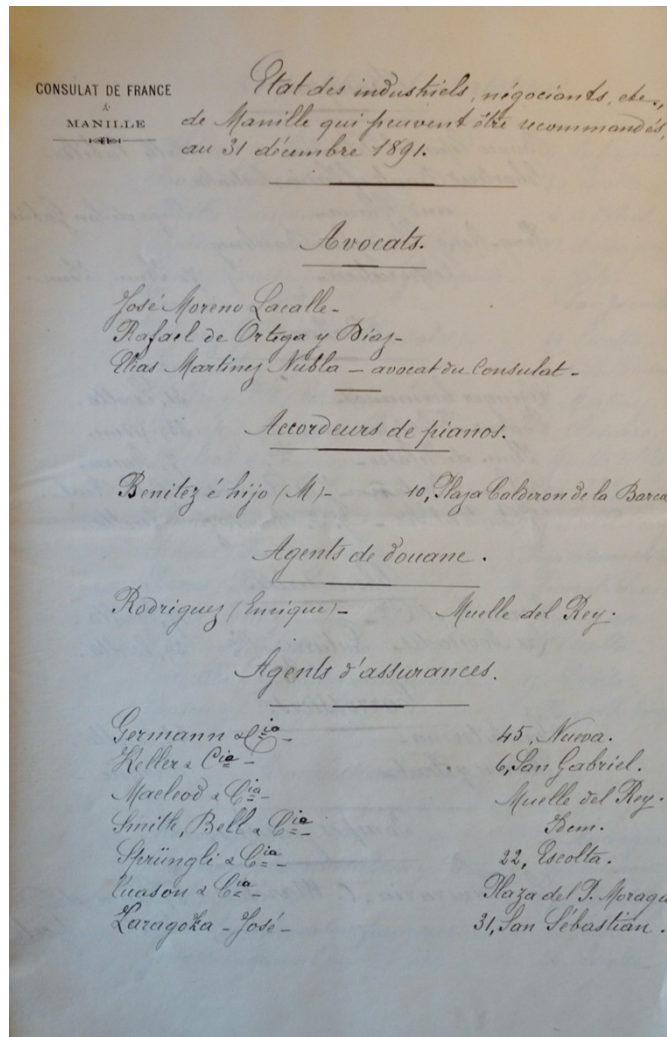 CONSULAT DE FRANCE
à
MANILLE
Etat des industriels, négociants, etc.,
de Manille qui peuvent être recommandés,
au 31 décembre 1891.
Avocats.
José Moreno Lacalle -
Rafael de Ortega y Diaz -
Elias Martinez Nubla - avocat du Consulat -
Accordeurs de pianos.
Benitez é hijo (M) - 10, Plaza Calderon de la Barca
Agents de douane.
Rodriguez (Enrique) - Muelle del Rey.
Agents d'assurances.
Germann & Cia - 45, Nueva.
Keller & Cie - 6, San Gabriel.
Macleod & Cia - Muelle del Rey.
Smith, Bell & Cia - Idem.
Sprüngli & Cia - 22, Escolta.
Tuason & Cia - Plaza del P. Moraga
Zaragoza - José - 31, San Sébastian.